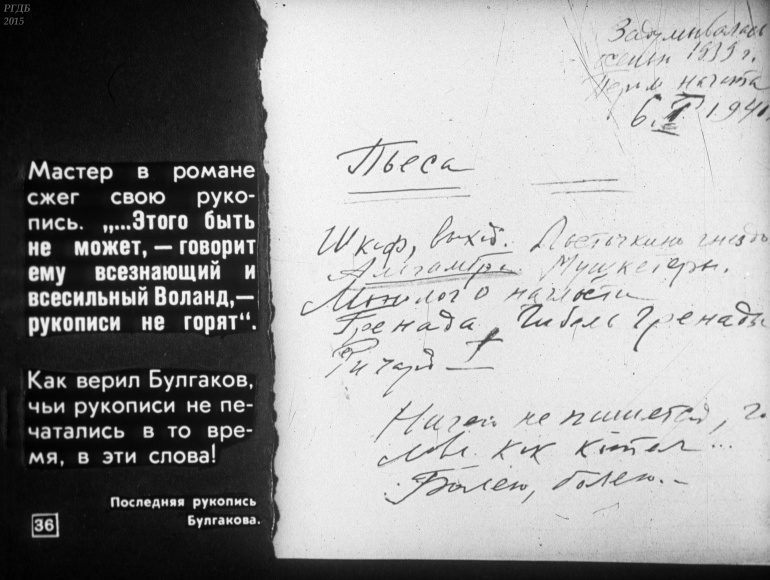 РГДБ
2015
Мастер в романе
сжег свою руко-
пись. „...Этого быть
не может, — говорит
ему всезнающий и
всесильный Воланд,—
рукописи не горят“.
Как верил Булгаков,
чьи рукописи не пе-
чатались в то вре-
мя, в эти слова!
Последняя рукопись
Булгакова.
36
Задумывалась
1939 г.
начата
6. I 1940
Пьеса
Шкаф, выход. Ласточкино гнездо
Альгамбра. Мушкетеры.
Монолог о наглости
Гренада, Гибель Гренады
Ричард
Ничего не пишется, го
лова как котел...
Болею, болею.-